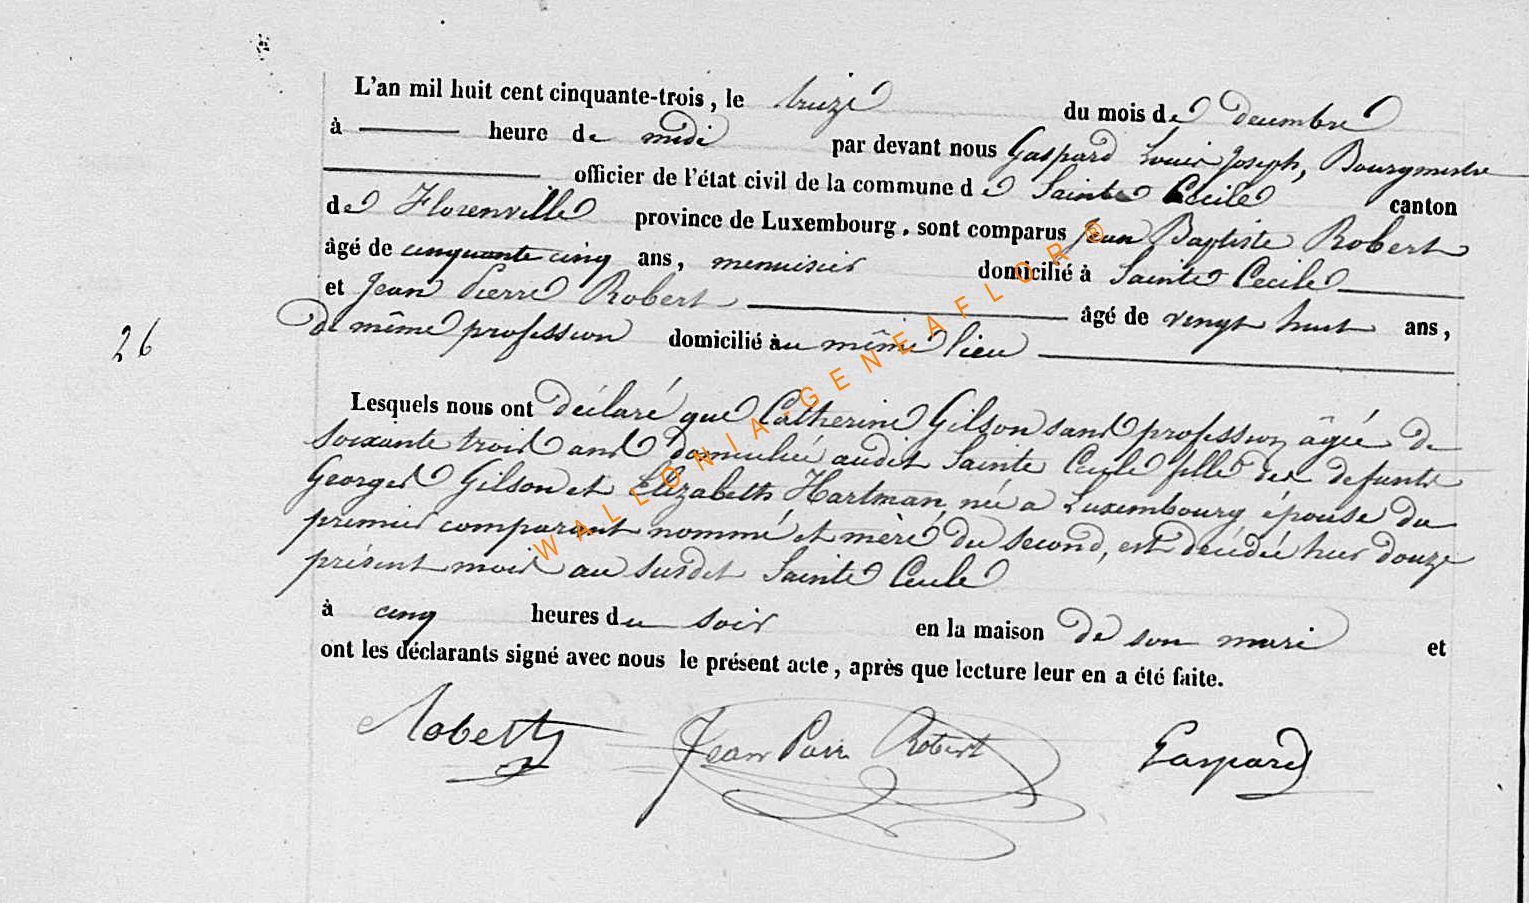 L'an mil huit cent cinquante-trois, le treize du mois de Decembre
à heure de midi par devant nous Gaspard Louis Joseph, Bourgmestre
officier de l'état civil de la commune de Sainte Cecile canton
de Florenville province de Luxembourg, sont comparus Jean Baptiste Robert
âgé de cinquante cinq ans, menuisier domicilié à Sainte Cecile
et Jean Pierre Robert âgé de vingt huit ans,
de même profession domicilié au même lieu
26
Lesquels nous ont déclaré que Catherine Gilson sans profession âgée de
soixante trois ans domiciliée audit Sainte Cecile fille des defunts
Georges Gilson et Elizabeth Hartman, née a Luxembourg épouse du
premier comparant nommé et mère du second, est décédée hier douze
présent mois au susdit Sainte Cecile
à cinq heures du soir en la maison de son mari et
ont les déclarants signé avec nous le présent acte, après que lecture leur en a été faite.
Robert Jean Pierre Robert Gaspard
WALLONIA-GENEAFLOR®